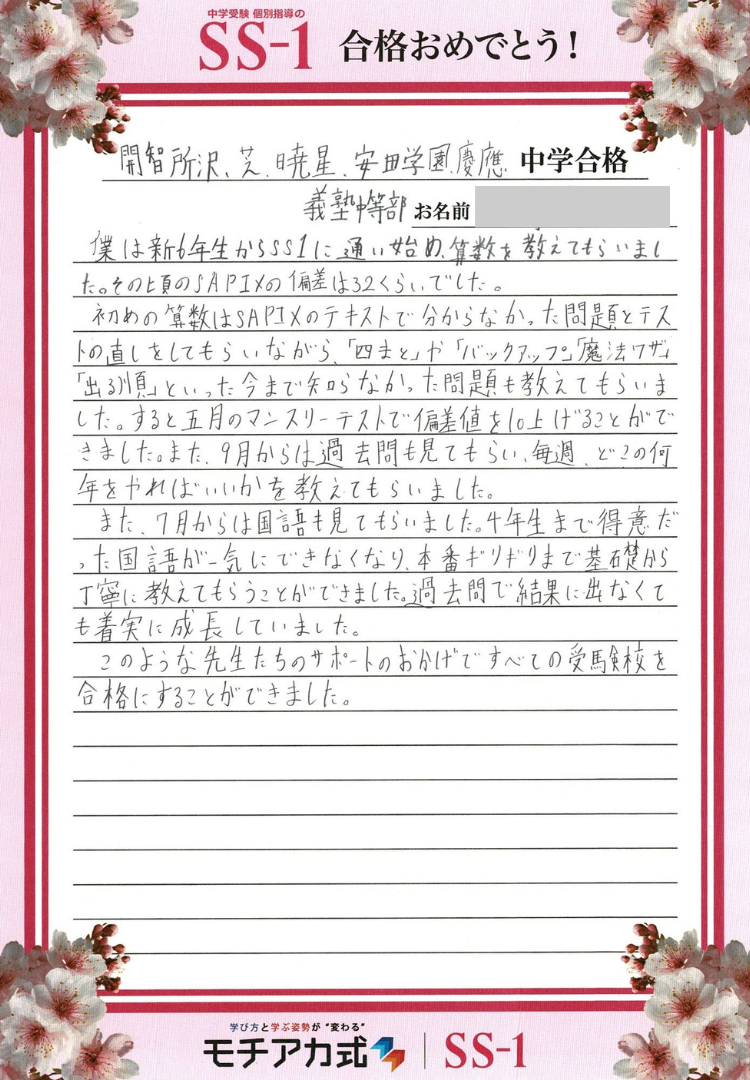 中学受験 個別指導の
SS-1 合格おめでとう！
開智所沢、芝、暁星、安田学園、慶應 中学合格
義塾中等部 お名前
僕は新6年生からSS1に通い始め、算数を教えてもらいまし
た。その頃のSAPIXの偏差は32くらいでした。
初めの算数はSAPIXのテキストで分からなかった問題とテス
トの直しをしてもらいながら、「四まと」や「バックアップ」「魔法ワザ」
「出る順」といった今まで知らなかった問題も教えてもらいま
した。すると五月のマンスリーテストで偏差値を10上げることがで
きました。また、9月からは過去問も見てもらい、毎週、どこの何
年をやればいいかを教えてもらいました。
また、7月からは国語も見てもらいました。4年生まで得意だ
った国語が一気にできなくなり、本番ギリギリまで基礎から
丁寧に教えてもらうことができました。過去問で結果に出なくて
も着実に成長していました。
このような先生たちのサポートのおかげですべての受験校を
合格にすることができました。
学び方と学ぶ姿勢が“変わる”
モチアカ式 SS-1